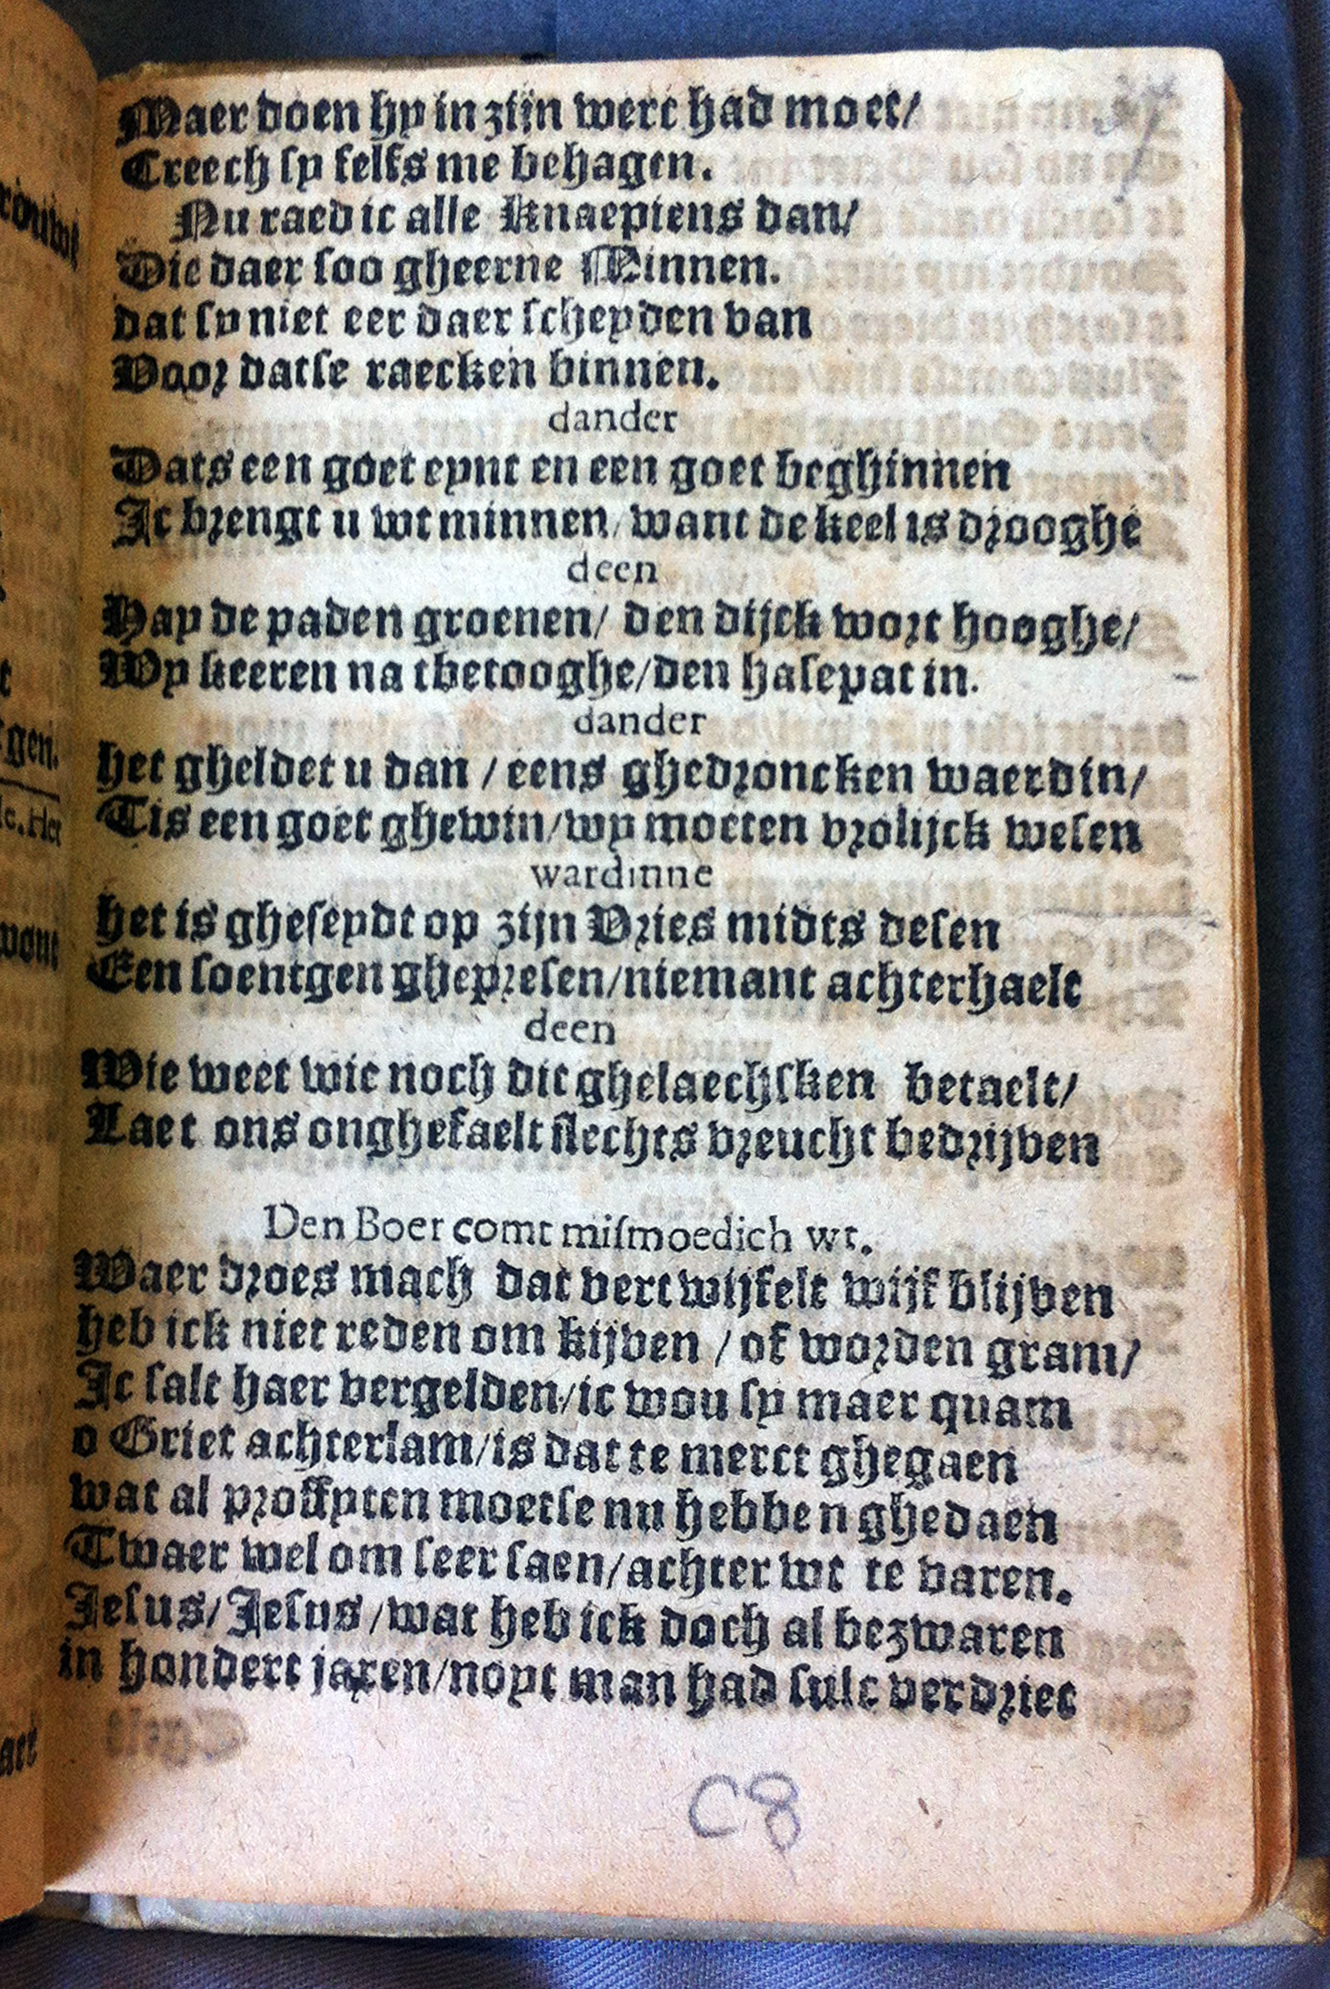 Maer doen hy in zijn werc had moet/
Creech sy selfs me behagen.
Nu raed ic alle Knaepiens dan/
Die daer soo gheerne Minnen.
dat sy niet eer daer scheyden van
Voor datse raecken binnen.
dander
Dats een goet eynt en een goet beghinnen
Ic brengt u wt minnen/want de keel is drooghe
deen
Hay de paden groenen/ den dijck wort hooghe/
Wy keeren na tbetooghe/den hasepat in.
dander
het gheldet u dan / eens ghedroncken waerdin/
Tis een goet ghewin/wy moeten vrolijck wesen
wardinne
het is gheseydt op zijn Vries midts desen
Een soentgen ghepresen/niemant achterhaelt
deen
Wie weet wie noch dit ghelaechsken betaelt/
Laet ons onghefaelt slechts vreucht bedrijven
Den Boer comt mismoedich wt.
Waer droes mach dat vertwijfelt wijf blijven
heb ick niet reden om kijven / of worden gram/
Ic salt haer vergelden/ic wou sy maer quam
o Griet achterlam/is dat te merct ghegaen
wat al proffyten moetse nu hebben ghedaen
Twaer wel om seer saen/achter wt te varen.
Jesus/Jesus/wat heb ick doch al bezwaren
in hondert jaren/noyt man had sulc verdriet
C8